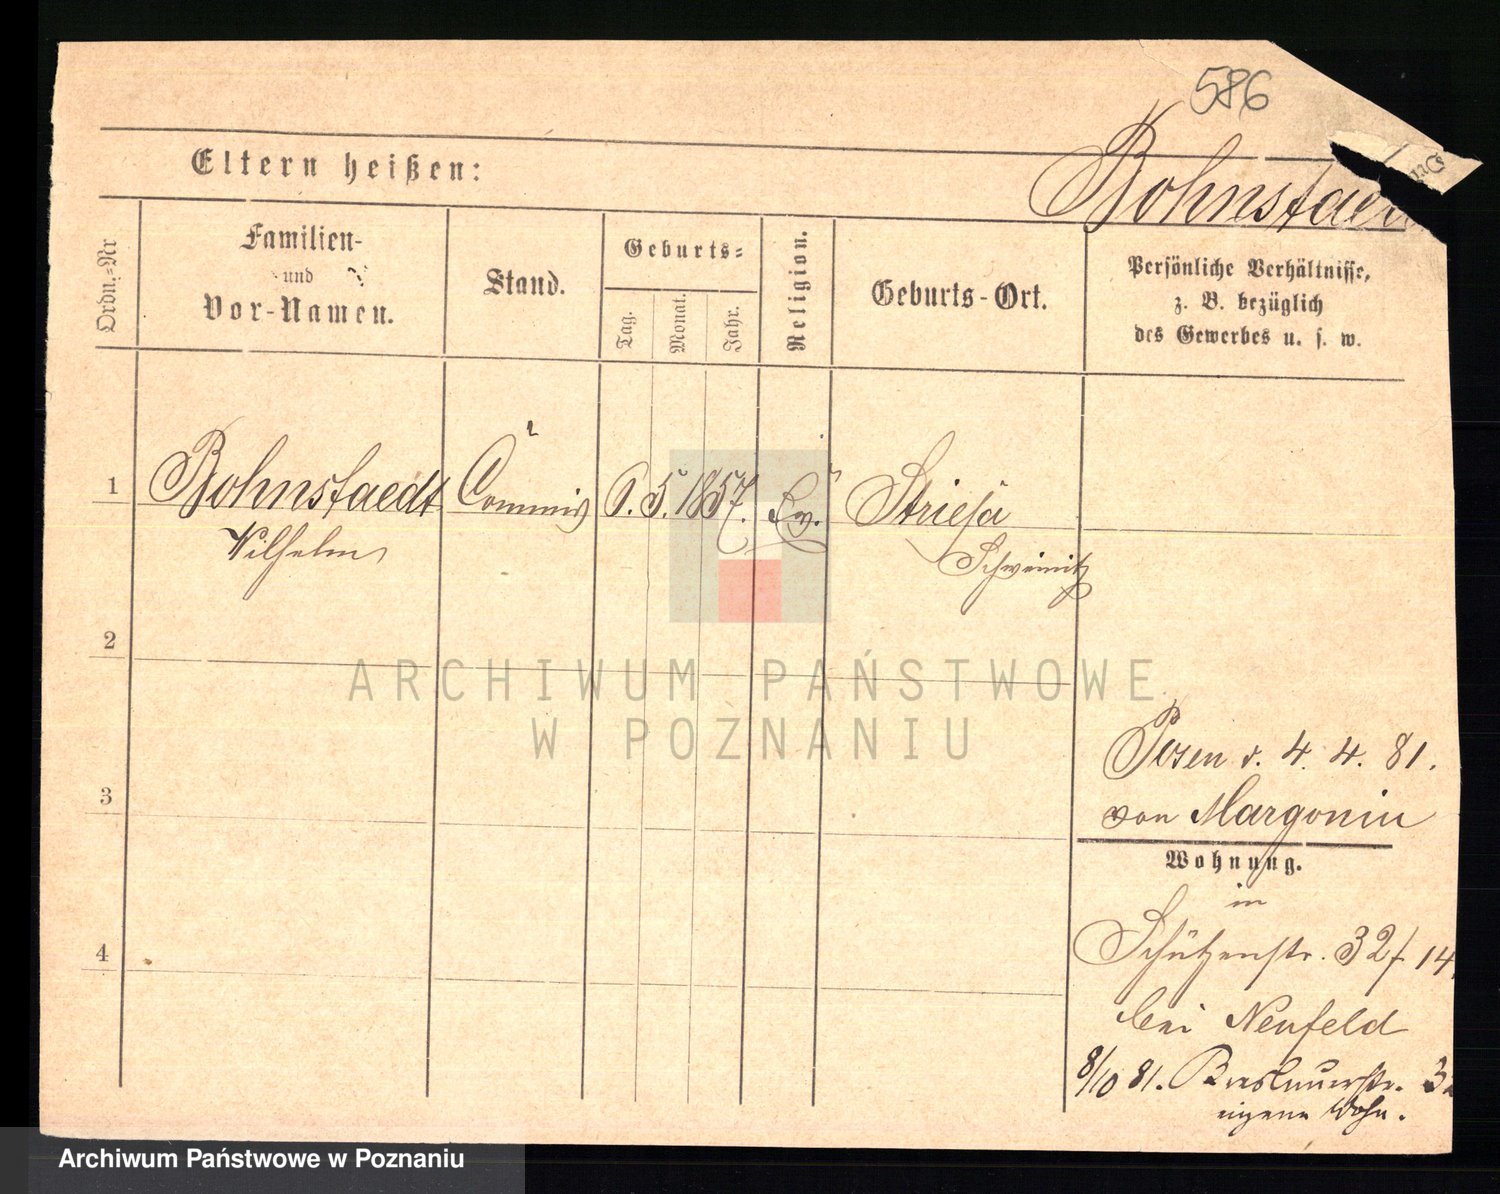 586
Bohnstaedt
Eltern heißen:
Ordn.-Nr
Familien-
und
Vor-Namen.
Stand.
Geburts-
Tag.
Monat.
Jahr.
Religion.
Geburts-Ort.
Persönliche Verhältnisse,
z. B. bezüglich
des Gewerbes u. s. w.
1 Bohnstaedt Commis 6. 5. 1857. Ev. Striesa
Wilhelm
Schweinitz
2
3
4
Posen d. 4. 4. 81.
von Margonin
Wohnung.
in
Schützenstr. 32 / 14
bei Neufeld
8/10 81. Breslauerstr. 3
eigene Wohn.
ARCHIWUM PAŃSTWOWE
W POZNANIU
Archiwum Państwowe w Poznaniu